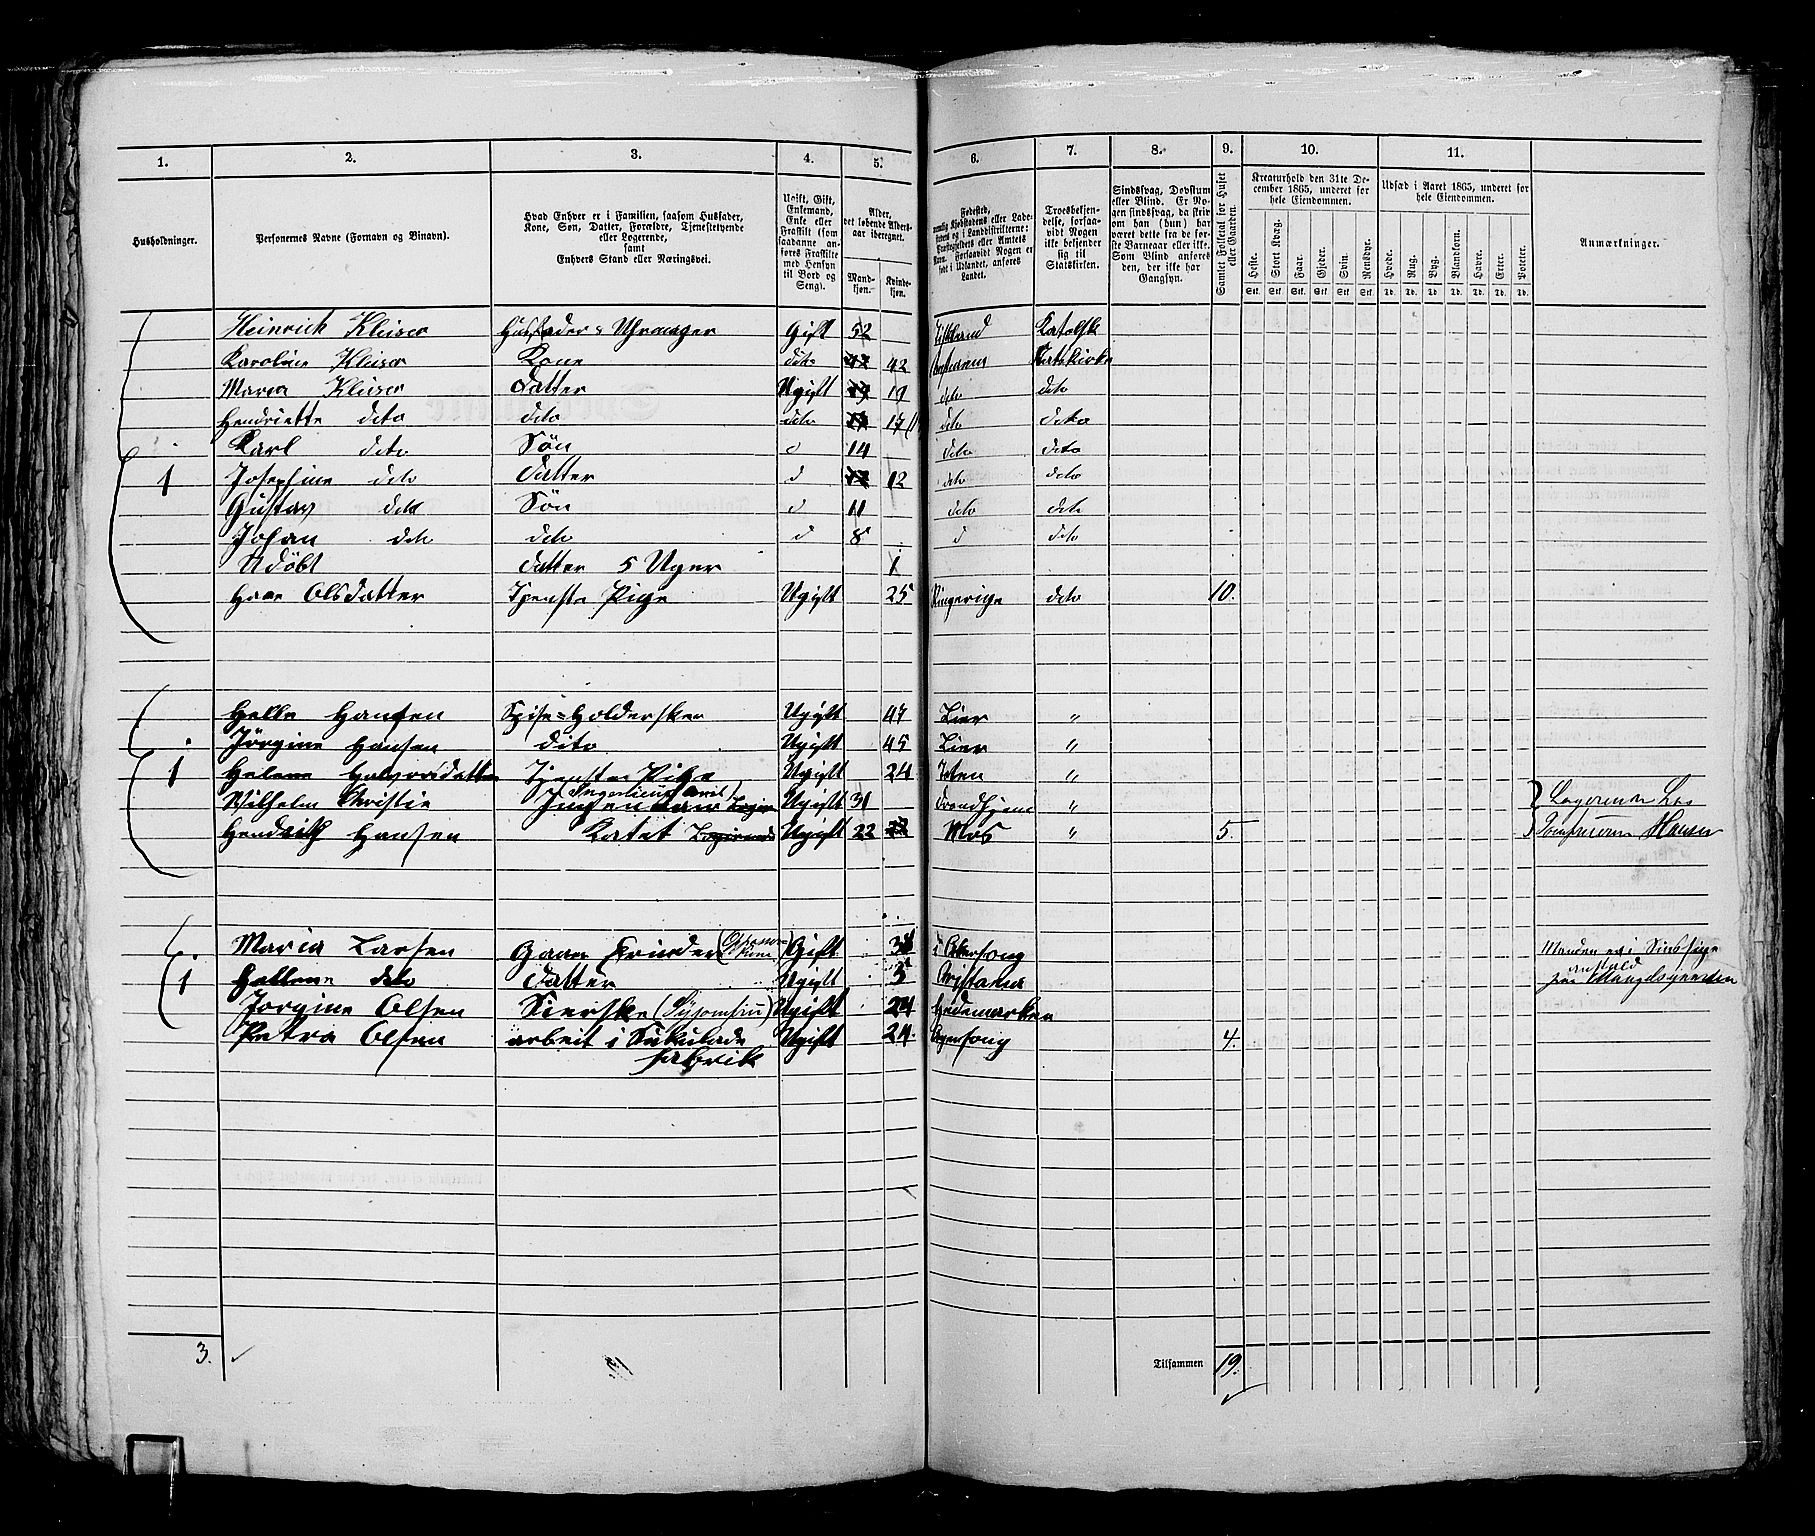 1. 2. 3. 4. 5. 6. 7. 8. 9. 10. 11.
Husholdninger.
Personernes Navne (Fornavn og Binavn).
Hvad Enhver er i Familien, saasom Husfader, Kone, Søn, Datter, Forældre, Tjenestetyende eller Logerende, samt Enhvers Stand eller Næringsvei.
Ugift, Gift, Enkemand, Enke eller Fraskilt (som saadanne anføres Fraskilte med Hensyn til Bord og Seng).
Alder, det løbende Aldersaar iberegnet.
Mandkjøn. Kvindekjøn.
Fødested, nemlig Kjøbstedens eller Ladestedets og i Landdistrikterne: Præstegjeldets eller Amtets Navn. Forsaavidt Nogen er født i Udlandet, anføres Landet.
Troesbekjendelse, forsaavidt Nogen ikke bekjender sig til Statskirken.
Sindssvag, Døvstum eller Blind. Er Nogen sindssvag, da skrives om han (hun) har været dette fra de første Barneaar eller ikke. Som Blind anføres den, der ikke har Gangsyn.
Samlet Folketal for Huset eller Gaarden.
Kreaturhold den 31te December 1865, underet for hele Eiendommen.
Heste. Stort Kvæg. Faar. Gjeder. Svin. Rensdyr.
Stk. Stk. Stk. Stk. Stk. Stk.
Udsæd i Aaret 1865, underet for hele Eiendommen.
Hvede. Rug. Byg. Blandkorn. Havre. Erter. Poteter.
Td. Td. Td. Td. Td. Td. Td.
Anmærkninger.
Heinrich Gift 52 Katolsk
Karoline Kone dito 42 42
Maria Datter Ugift 19 19 dito dito
Hendriette dito dito dito 17 dito dito
Karl dito Søn d 14 dito dito
1 Josephine dito Datter d 12 12 dito dito
Gustav dito Søn d 11 dito dito
Johan dito dito d 8 d dito
Udöbt Datter 5 Uger 1
Olsdatter Tjenste Pige Ugift 25 Ringerige dito 10.
Helle Hansen Ugift 47 Lier "
Jörgine Hansen dito Ugift 45 Lier "
1 Helene Halvorsdatter Tjenste Pige Ugift 24 Toten "
Wilhelm Christie Ugift 31 Trondhjem "
Hendrik Hansen Kadet Logerende Ugift 22 22 Mos " 5.
Maria Larsen Gift Manden er i Sindssyge
1 Hellene dito Datter Ugift 5 Christania anstald
Jorgine Olsen Sierske Ugift 24 Hedemarken
Petra Olsen arbeit i Sukulade Ugift 24. 4.
fabrik
3.
Tilsammen 19.